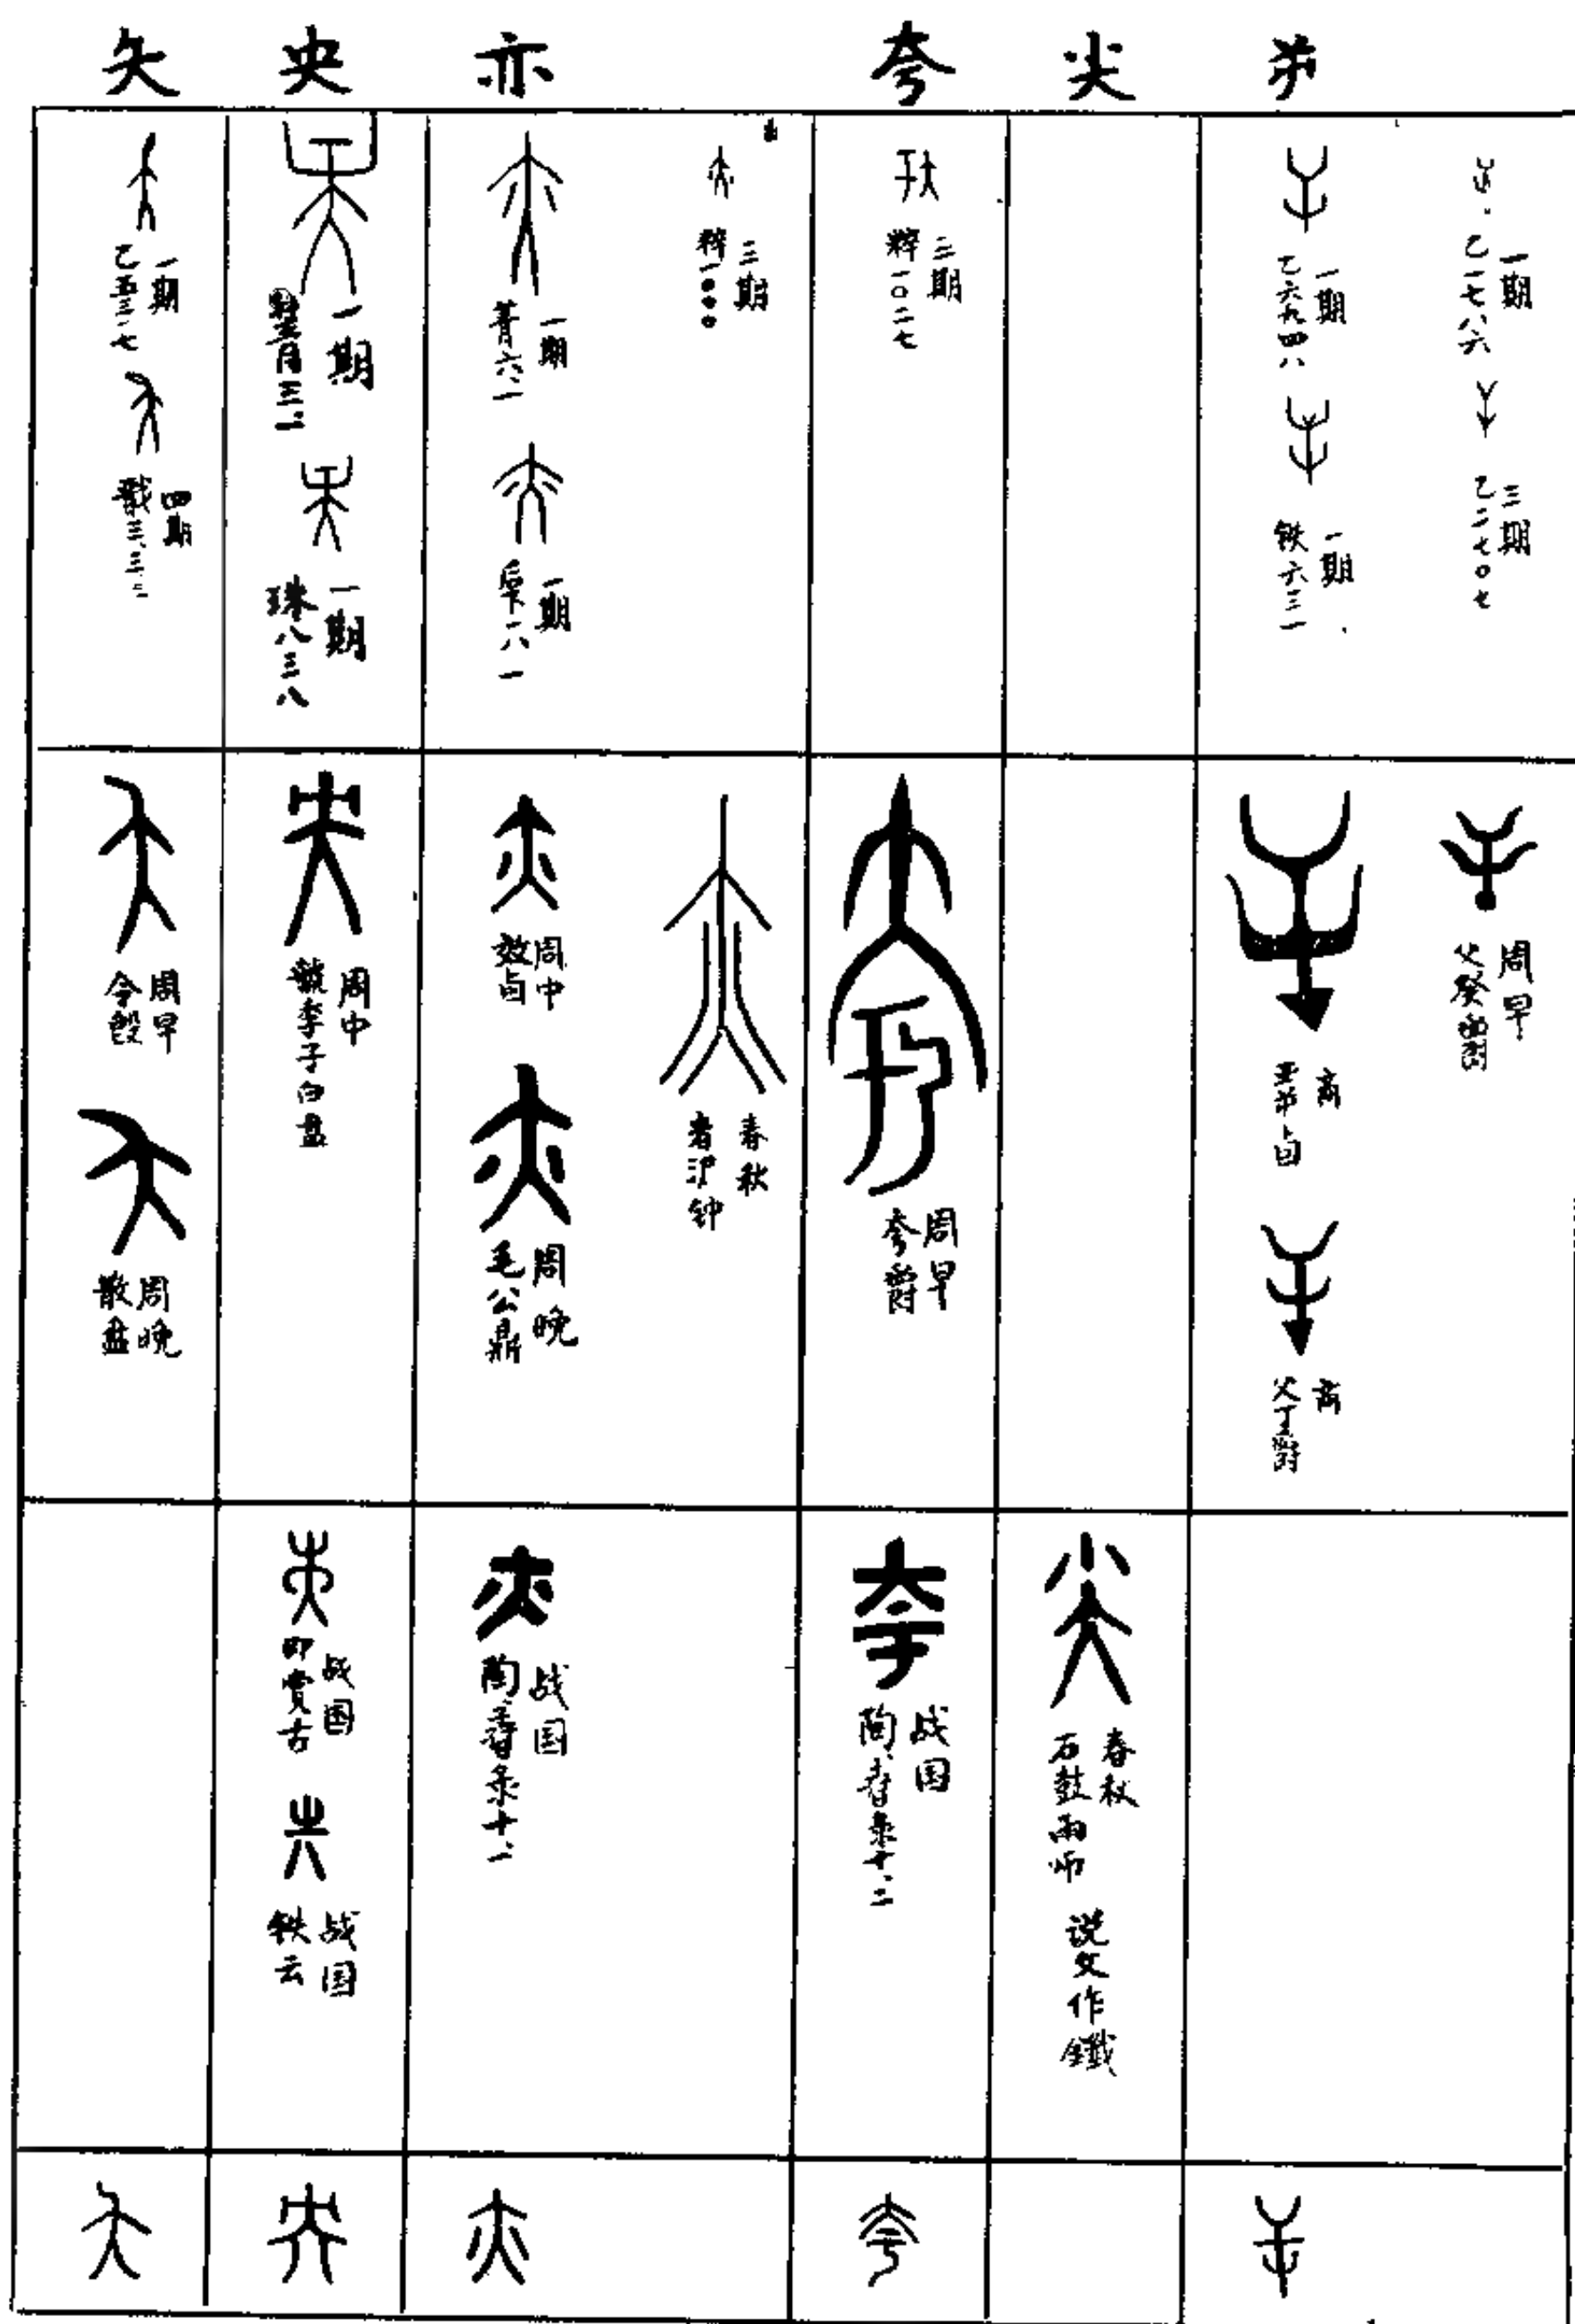 尖
夸
亦
央
夨
一期
乙一七八六
三期
乙二七〇七
一期
乙六九四八
一期
铁六三一
三期
粹一〇二七
三期
粹一〇〇〇
一期
菁六一
一期
后下一八一
一期
一期
珠八三八
一期
乙五三一七
四期
周早
父癸爵
商
商
父丁爵
周早
夸爵
春秋
者沪钟
周中
效卣
周晚
毛公鼎
周中
虢季子白盘
周早
令毁
周晚
散盘
春秋
石鼓雨师
说文作鑯
战国
陶舂录十·二
战国
陶舂录十·一
战国
印賞古
战国
铁云